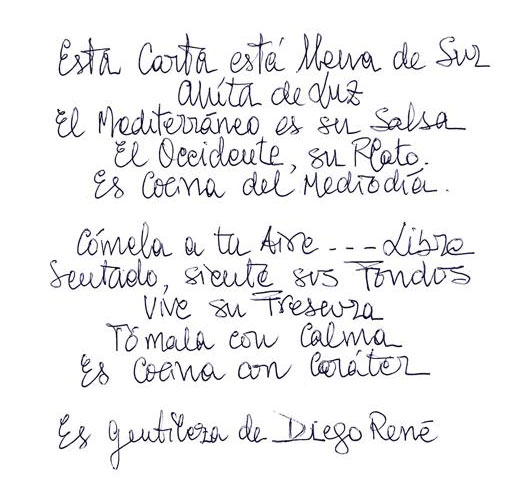 Esta Carta está llena de Sur
Ahíta de Luz
El Mediterráneo es su Salsa
El Occidente, su Plato.
Es Cocina del Mediodía.
Cómela a tu Aire --- Libre
Sentado, siente sus Fondos
Vive su Frescura
Tómala con Calma
Es Cocina con Caráter
Es gentileza de Diego René